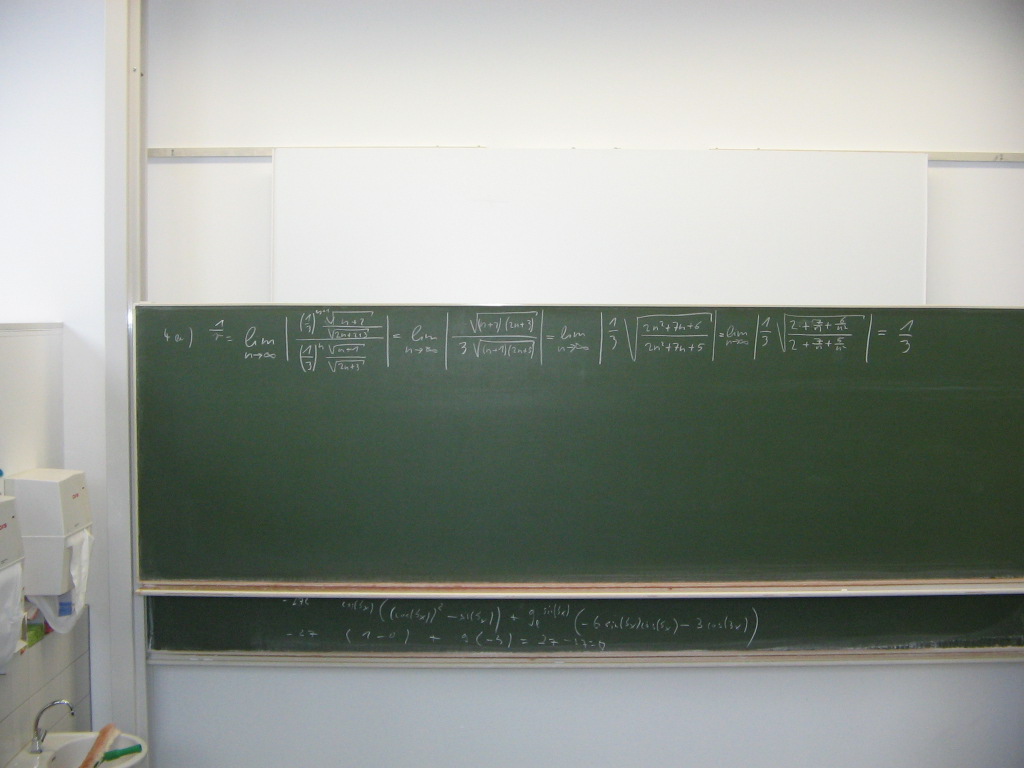 4a) 1/r = lim n→∞ | (1/3)^(n+1) √(n+2) / √(2n+2+3) / (1/3)^n √(n+1) / √(2n+3) | = lim n→∞ | √((n+2)(2n+3)) / 3 √((n+1)(2n+5)) | = lim n→∞ | 1/3 √(2n²+7n+6 / 2n²+7n+5) | = lim n→∞ | 1/3 √(2+7/n+6/n² / 2+7/n+5/n²) | = 1/3
((cos(3x))² - sin(3x)) + 9e^sin(3x) (-6 sin(3x) cos(3x) - 3 cos(3x))
-27 (1-0) + 9(-3) = 27-27=0